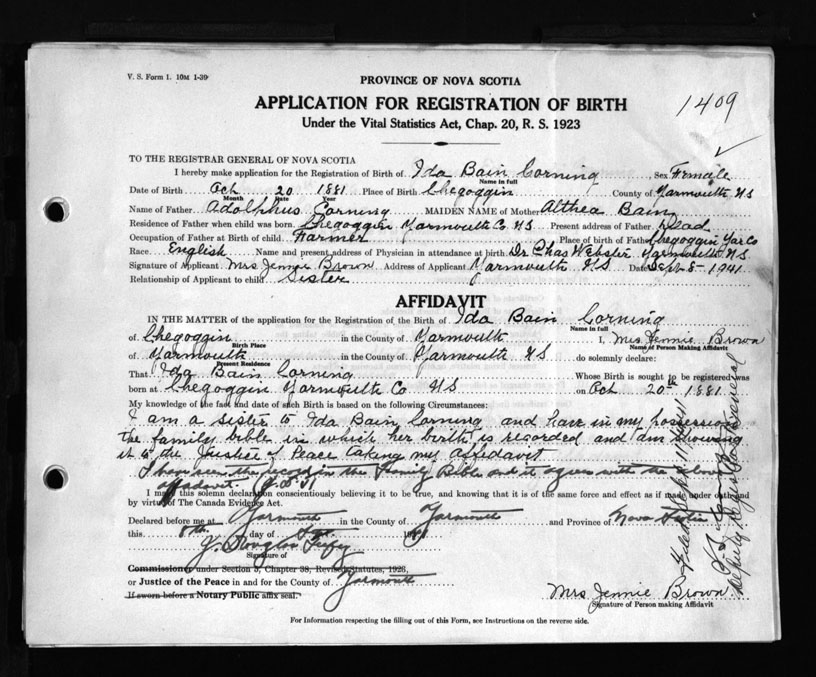 V. S. Form 1. 10M 1-39
PROVINCE OF NOVA SCOTIA
1409
APPLICATION FOR REGISTRATION OF BIRTH
Under the Vital Statistics Act, Chap. 20, R. S. 1923
TO THE REGISTRAR GENERAL OF NOVA SCOTIA
I hereby make application for the Registration of Birth of Ida Bain Corning, Sex Female
Name in full
Date of Birth Oct 20 1881 Place of Birth Chegoggin County of Yarmouth NS
Month Day Year
Name of Father Adolphus Corning MAIDEN NAME of Mother Althea Bain
Residence of Father when child was born. Chegoggin Yarmouth Co. NS Present address of Father Dead
Occupation of Father at Birth of child. Farmer Place of birth of Father Chegoggin Yar Co
Race English Name and present address of Physician in attendance at birth Dr Chas Webster Yarmouth NS
Signature of Applicant Mrs Jennie Brown Address of Applicant Yarmouth NS Date Sept 8 1941
Relationship of Applicant to child Sister
AFFIDAVIT
IN THE MATTER of the application for the Registration of the Birth of Ida Bain Corning
Name in full
of Chegoggin in the County of Yarmouth I, Mrs Jennie Brown
Birth Place Name of Person Making Affidavit
of Yarmouth in the County of Yarmouth NS do solemnly declare:
Present Residence
That Ida Bain Corning Whose Birth is sought to be registered was
born at Chegoggin Yarmouth Co NS on Oct 20th 1881
My knowledge of the fact and date of such Birth is based on the following Circumstances:
I am a sister to Ida Bain Corning and have in my possession
the family bible in which her birth is recorded and am showing
it to the Justice of Peace taking my affidavit
I have seen the record in the Family Bible and it agrees with the above
affadavit.
I make this solemn declaration conscientiously believing it to be true, and knowing that it is of the same force and effect as if made under oath and
by virtue of The Canada Evidence Act.
Declared before me at Yarmouth in the County of Yarmouth and Province of Nova Scotia
this 8th day of Sept
Signature of
Commissioner under Section 3, Chapter 38, Revised Statutes, 1923,
or Justice of the Peace in and for the County of Yarmouth
If sworn before a Notary Public affix seal.
Mrs Jennie Brown
Signature of Person making Affidavit
Deputy Registrar General
For Information respecting the filling out of this Form, see Instructions on the reverse side.